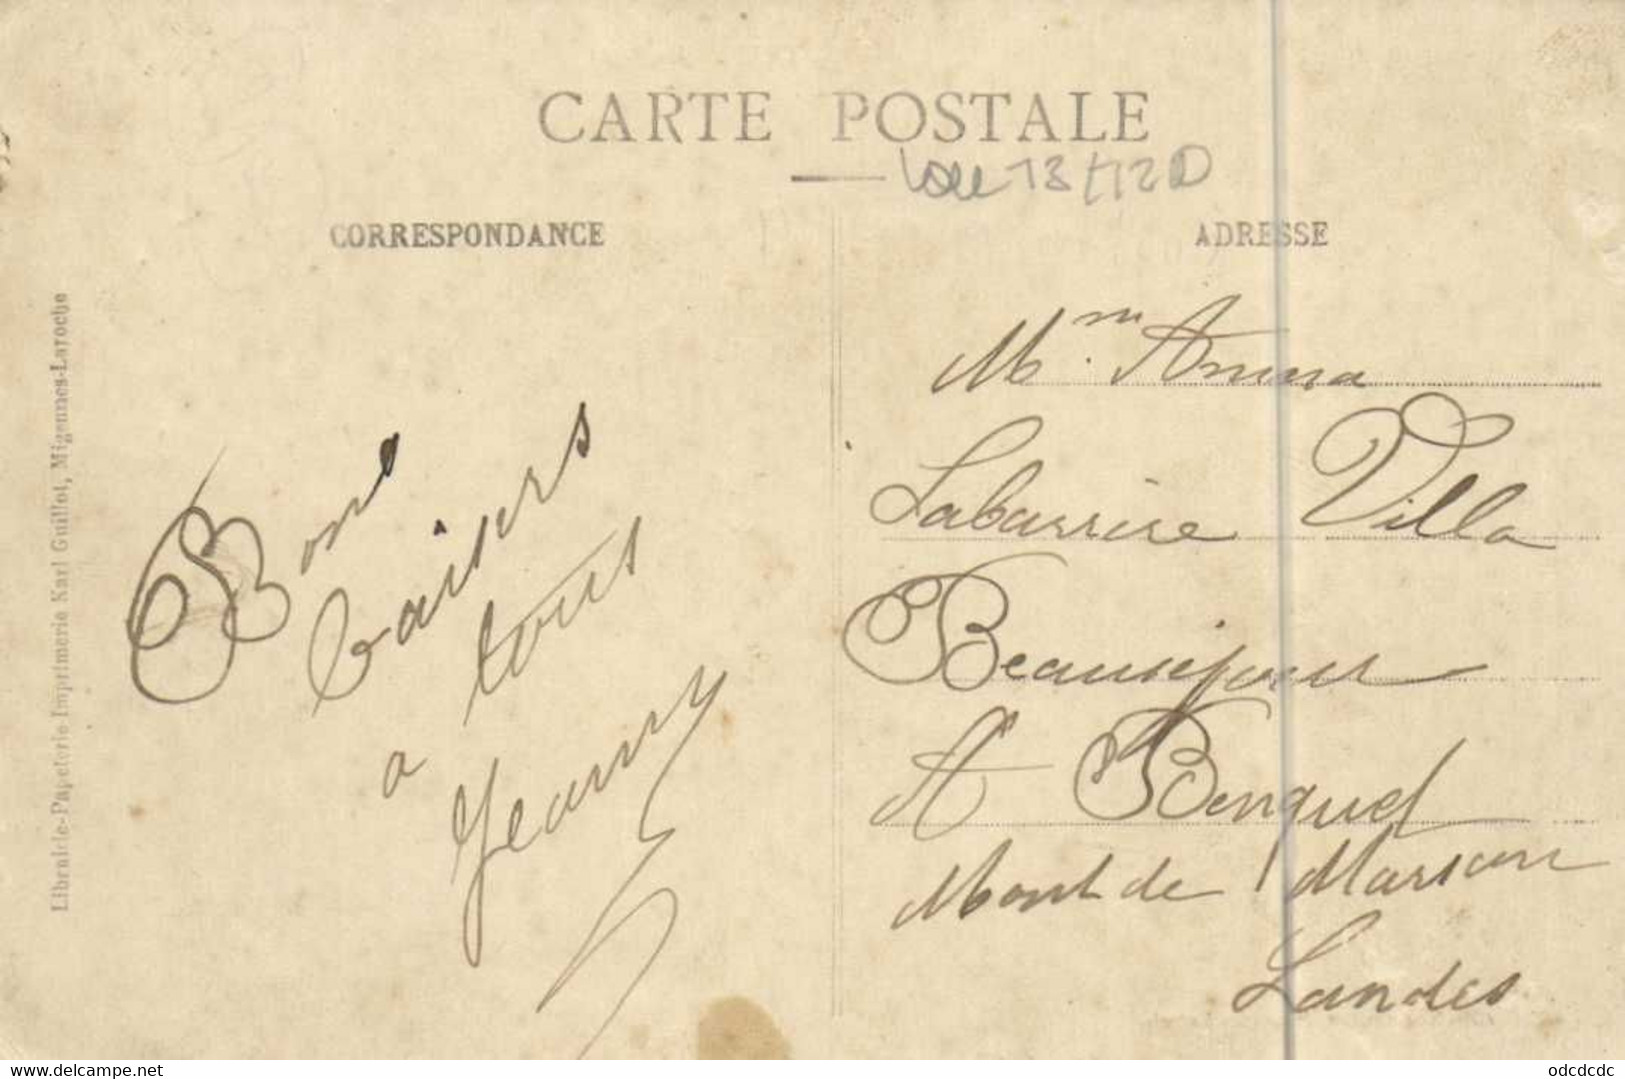 CARTE POSTALE
CORRESPONDANCE
ADRESSE
Librairie-Papeterie Imprimerie Karl Guillot, Migennes-Laroche
Bons
baisers
a tous
Jeanny
Mm. Anna
Labarrire Villa
Beausejour
A Benquet
Mont de Marsan
Landes
delcampe.net
odcdcdc